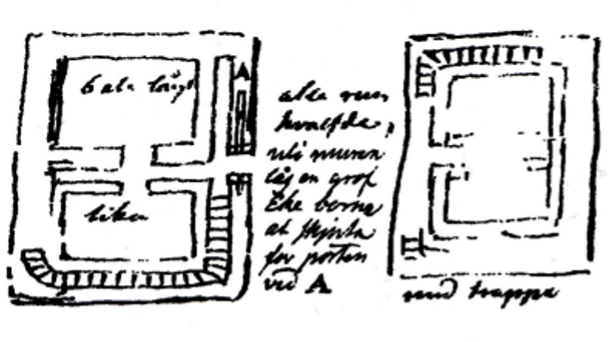 A
6 al: långt
lika
alla rum
hvalfda,
uti muren
låg en grof
Eke
at skjuta
for porten
ved A
trappa